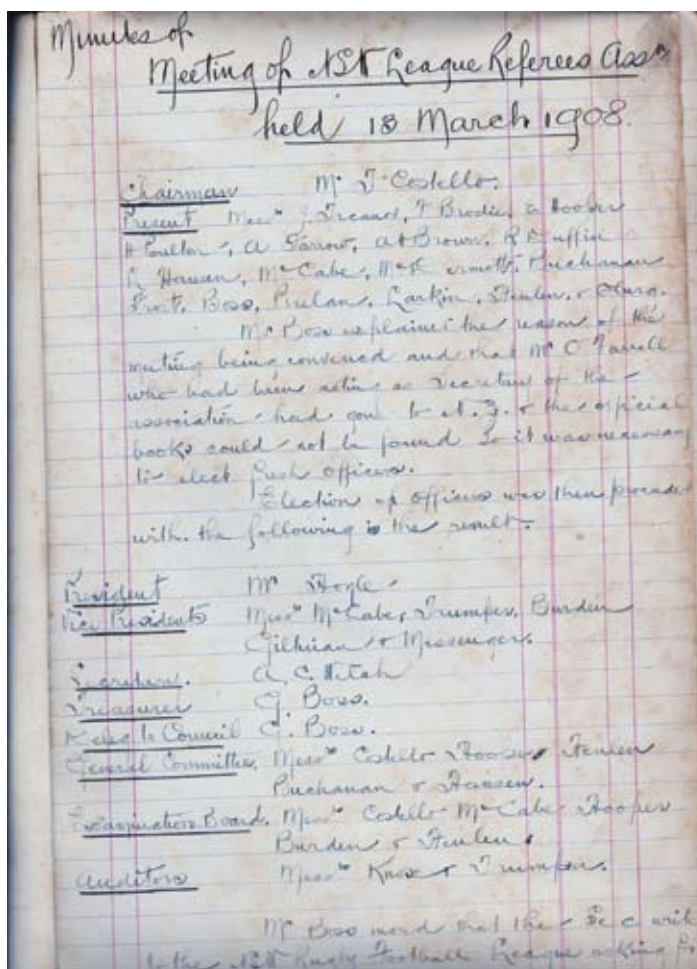 Minutes of
Meeting of NSW League Referees Assn
held 18 March 1908.
Chairman Mr T. Costello.
Present Messrs J. , T Brodie, C Hooper
H Poulton, A Farrow, A H Brown, R Duffin
Hansen, McCabe, McKermott, Buchanan
Frost, Boss, Phelan, Larkin, &
Mr Boss explained the reason of the
meeting being convened and that Mr O Farrell
who had been acting as Secretary of the
association had gone to N.Z. & the official
books could not be found so it was necessary
to elect fresh officers.
Election of officers was then proceeded
with. the following is the result.
President Mr Hoyle
Vice Presidents Messrs McCabe, Trumper, Burdin
& Messenger.
Secretary. A. C.
Treasurer C. Boss
Deleg to Council C. Boss.
General Committee. Messrs Costello Hooper
Buchanan & Hansen.
Examination Board. Messrs Costello McCabe Hooper
Burden &
Auditors Messrs Knox & Trumper.
Mr Boss moved that the Sec write
to the NSW Rugby Football League asking for